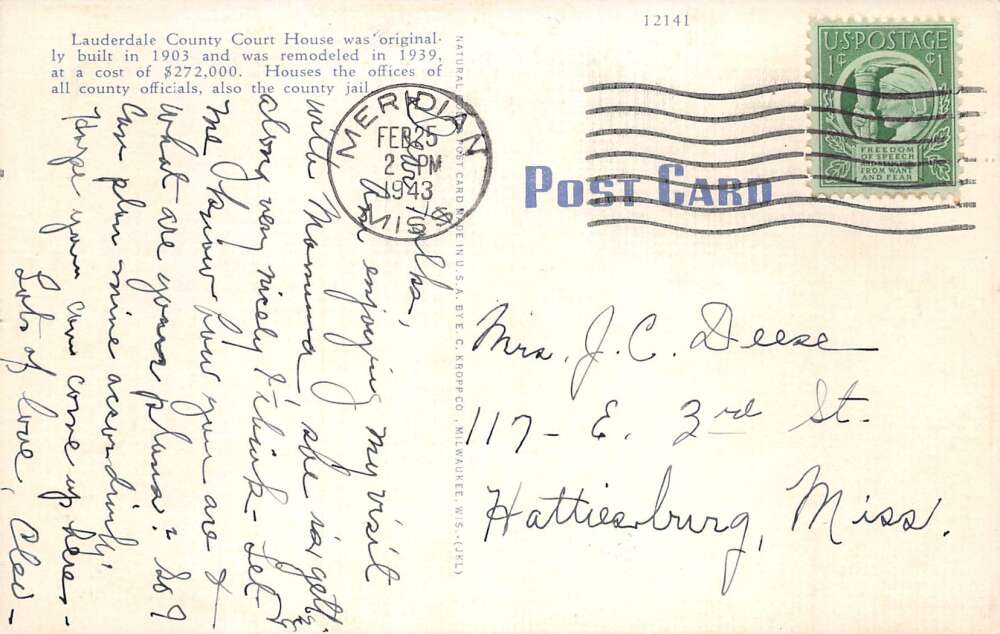 12141
Lauderdale County Court House was original-
ly built in 1903 and was remodeled in 1939,
at a cost of $272,000. Houses the offices of
all county officials, also the county jail.
NATURAL POST CARD MADE IN U.S.A. BY E. C. KROPP CO., MILWAUKEE, WIS.-(JKL)
MERIDIAN
FEB 25
2 PM
1943
MISS
U.S. POSTAGE
1¢ ¢1
FREEDOM
OF SPEECH
FROM WANT
AND FEAR
POST CARD
Am enjoying my visit
with Mamma, she is gett.
along very nicely I think - Let
me know how you are &
what are your plans? So I
can plan mine accordinly.
Hope you can come up here -
Lots of love, Cleo -
Mrs. J. C. Deese
117 - E. 3rd St.
Hattiesburg, Miss.